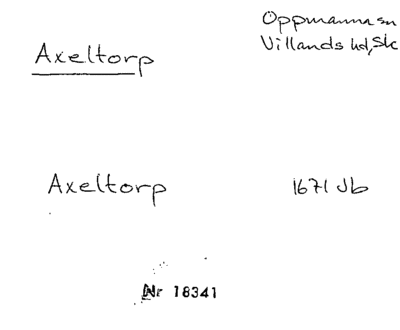 Axeltorp
Oppmanna sn
Villands hd, Sk
Axeltorp
1671 Jb
Nr 18341